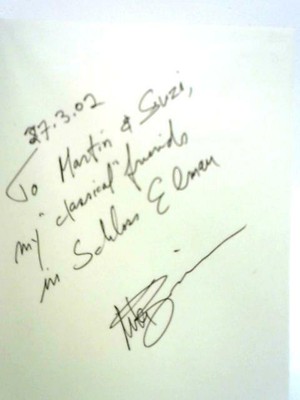 27.3.02
To Martin & Suzi,
my "classical" friends
in Schloss Elmau